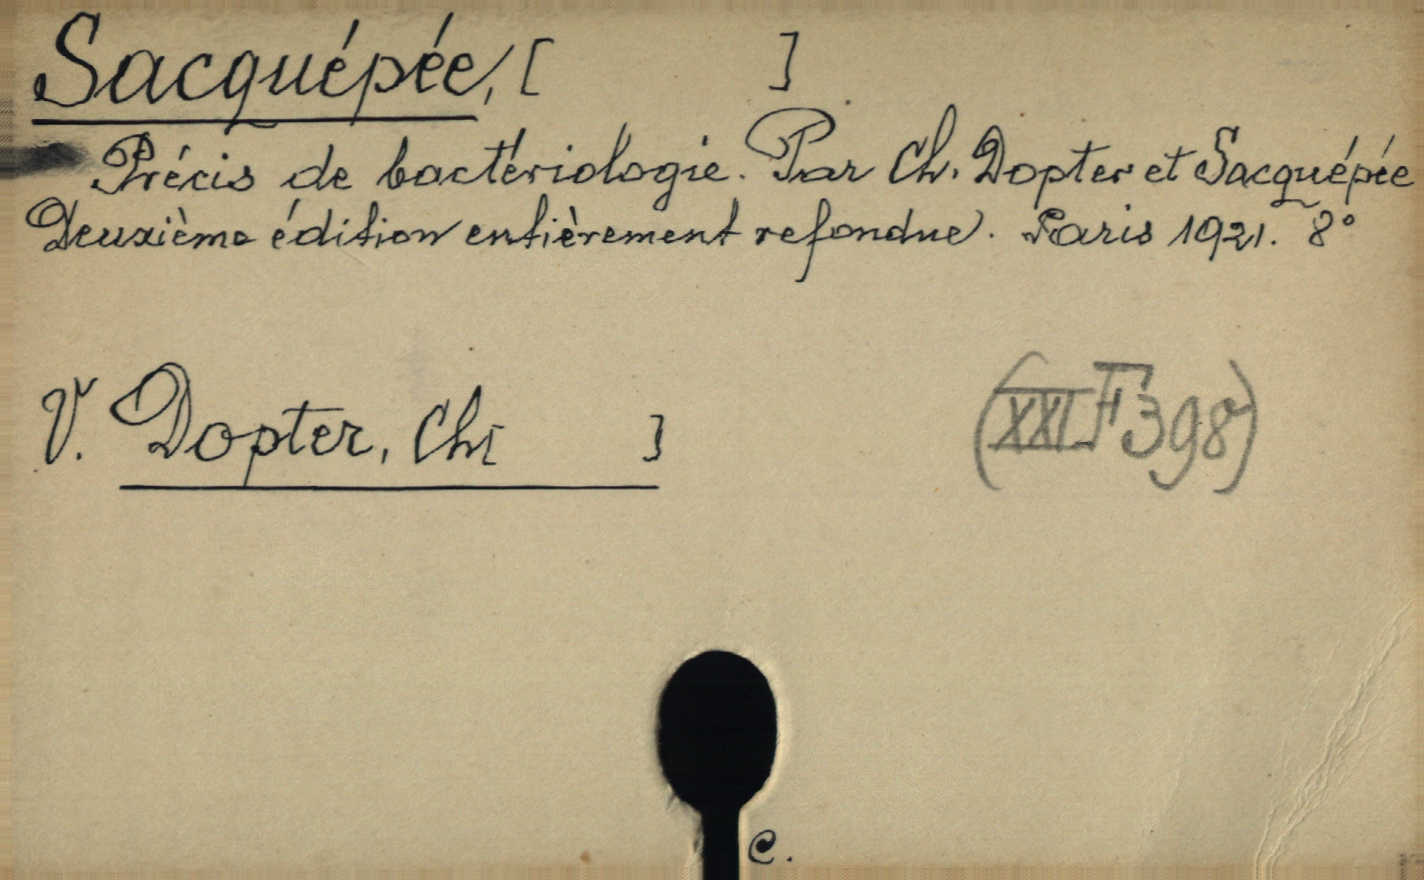 Sacquépée, [ ]
Précis de bactériologie. Par Ch. Dopter et Sacquépée
Deuxième édition entièrement refondue. Paris 1921. 8°
V. Dopter, Ch[ ]
(XXI F 398)
C.